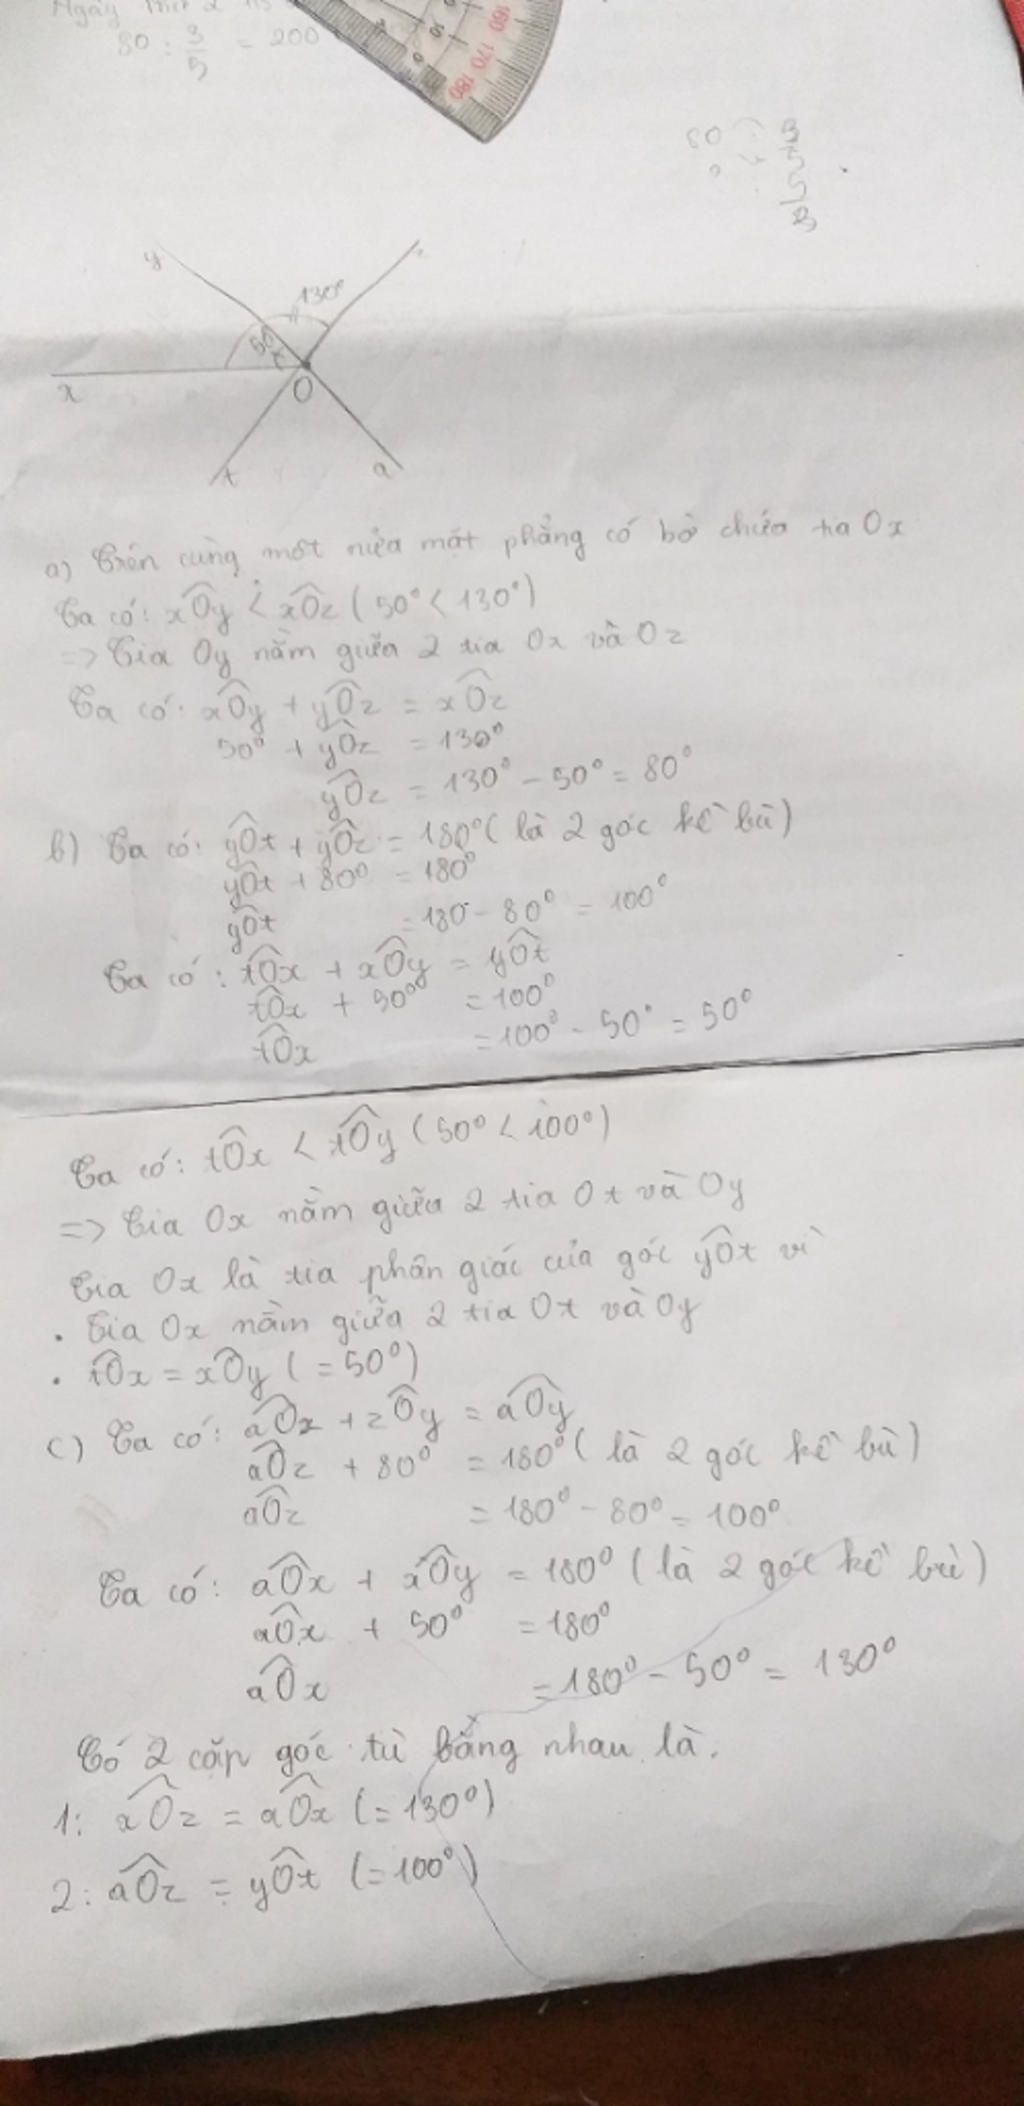 Ngày
80 : 3/5 = 200
160 170 180
0
80 : 3/5
5/3
y
130°
50°
x
O
t
a
a) Trên cùng một nửa mặt phẳng có bờ chứa tia Ox
Ta có: xÔy < xÔz (50° < 130°)
=> Tia Oy nằm giữa 2 tia Ox và Oz
Ta có: xÔy + yÔz = xÔz
50° + yÔz = 130°
yÔz = 130° - 50° = 80°
b) Ta có: yÔt + yÔz = 180° (là 2 góc kề bù)
yÔt + 80° = 180°
yÔt = 180 - 80° = 100°
Ta có: tÔx + xÔy = yÔt
tÔx + 50° = 100°
tÔx = 100° - 50° = 50°
Ta có: tÔx < tÔy (50° < 100°)
=> Tia Ox nằm giữa 2 tia Ot và Oy
Tia Ox là tia phân giác của góc yÔt vì
. Tia Ox nằm giữa 2 tia Ot và Oy
. tÔx = xÔy (= 50°)
c) Ta có: aÔz + zÔy = aÔy
aÔz + 80° = 180° (là 2 góc kề bù)
aÔz = 180° - 80° = 100°
Ta có: aÔx + xÔy = 180° (là 2 góc kề bù)
aÔx + 50° = 180°
aÔx = 180° - 50° = 130°
Có 2 cặp góc tù bằng nhau là.
1: xÔz = aÔx (= 130°)
2: aÔz = yÔt (= 100°)